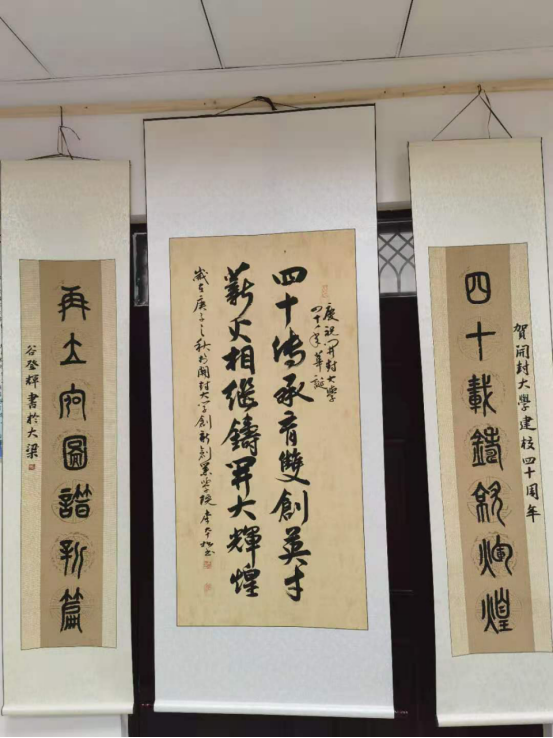 賀開封大學建校四十周年
四十載鑄就煇煌
慶祝開封大學
四十年華誕
四十傳承育雙創英才
薪火相繼鑄開大輝煌
歲在庚子之秋於開封大學創新創業學院
再立宏圖譜新篇
谷登輝書於大梁